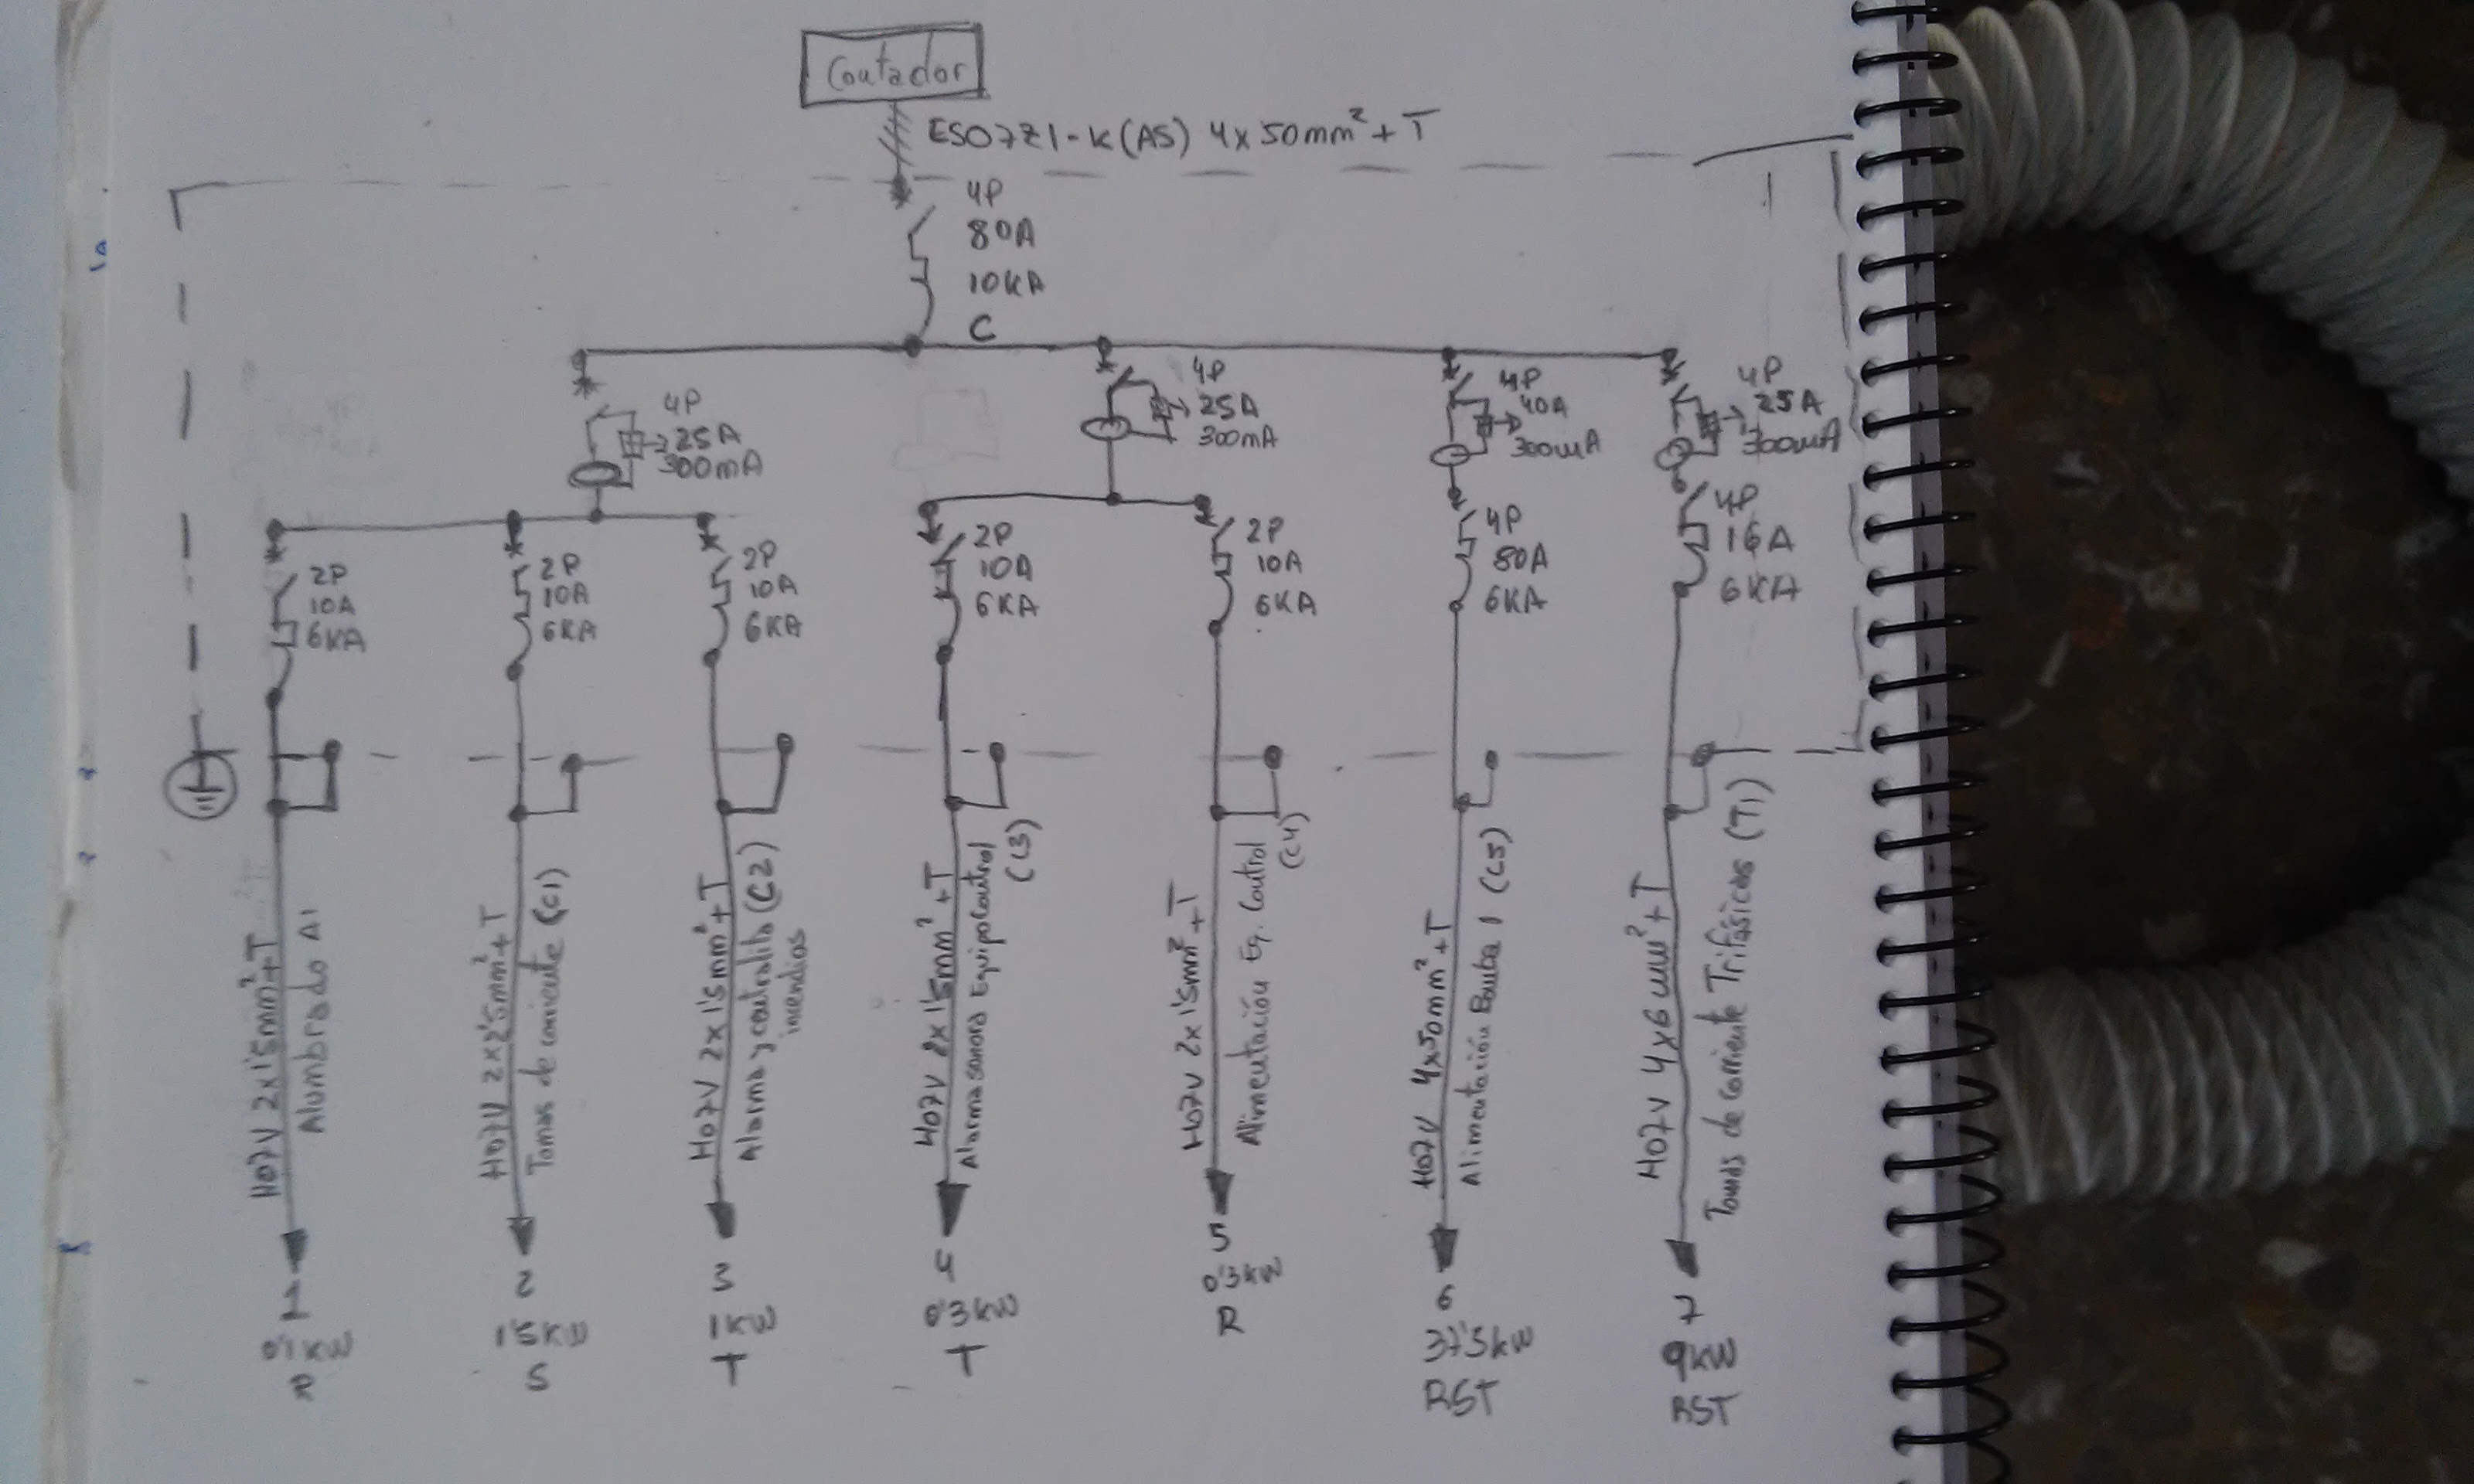 Contador
ES07Z1-K(AS) 4x50mm²+T
4P
80A
10KA
C
4P
25A
300mA
4P
25A
300mA
4P
40A
300mA
4P
25A
300mA
2P
10A
6KA
2P
10A
6KA
2P
10A
6KA
2P
10A
6KA
2P
10A
6KA
4P
80A
6KA
4P
16A
6KA
H07V 2x1'5mm²+T
Alumbrado A1
H07V 2x2'5mm²+T
Tomas de corriente (C1)
H07V 2x1'5mm²+T
Alarma y centralita (C2)
incendios
H07V 2x1'5mm²+T
Alarma sonora Equipo Control
(C3)
H07V 2x1'5mm²+T
Alimentación Eq. Control
(C4)
H07V 4x50mm²+T
Alimentación Bomba 1 (C5)
H07V 4x6mm²+T
Tomas de corriente Trifásicas (T1)
1
0'1KW
R
2
1'5KW
S
3
1KW
T
4
0'3KW
T
5
0'3KW
R
6
37'5KW
RST
7
9KW
RST